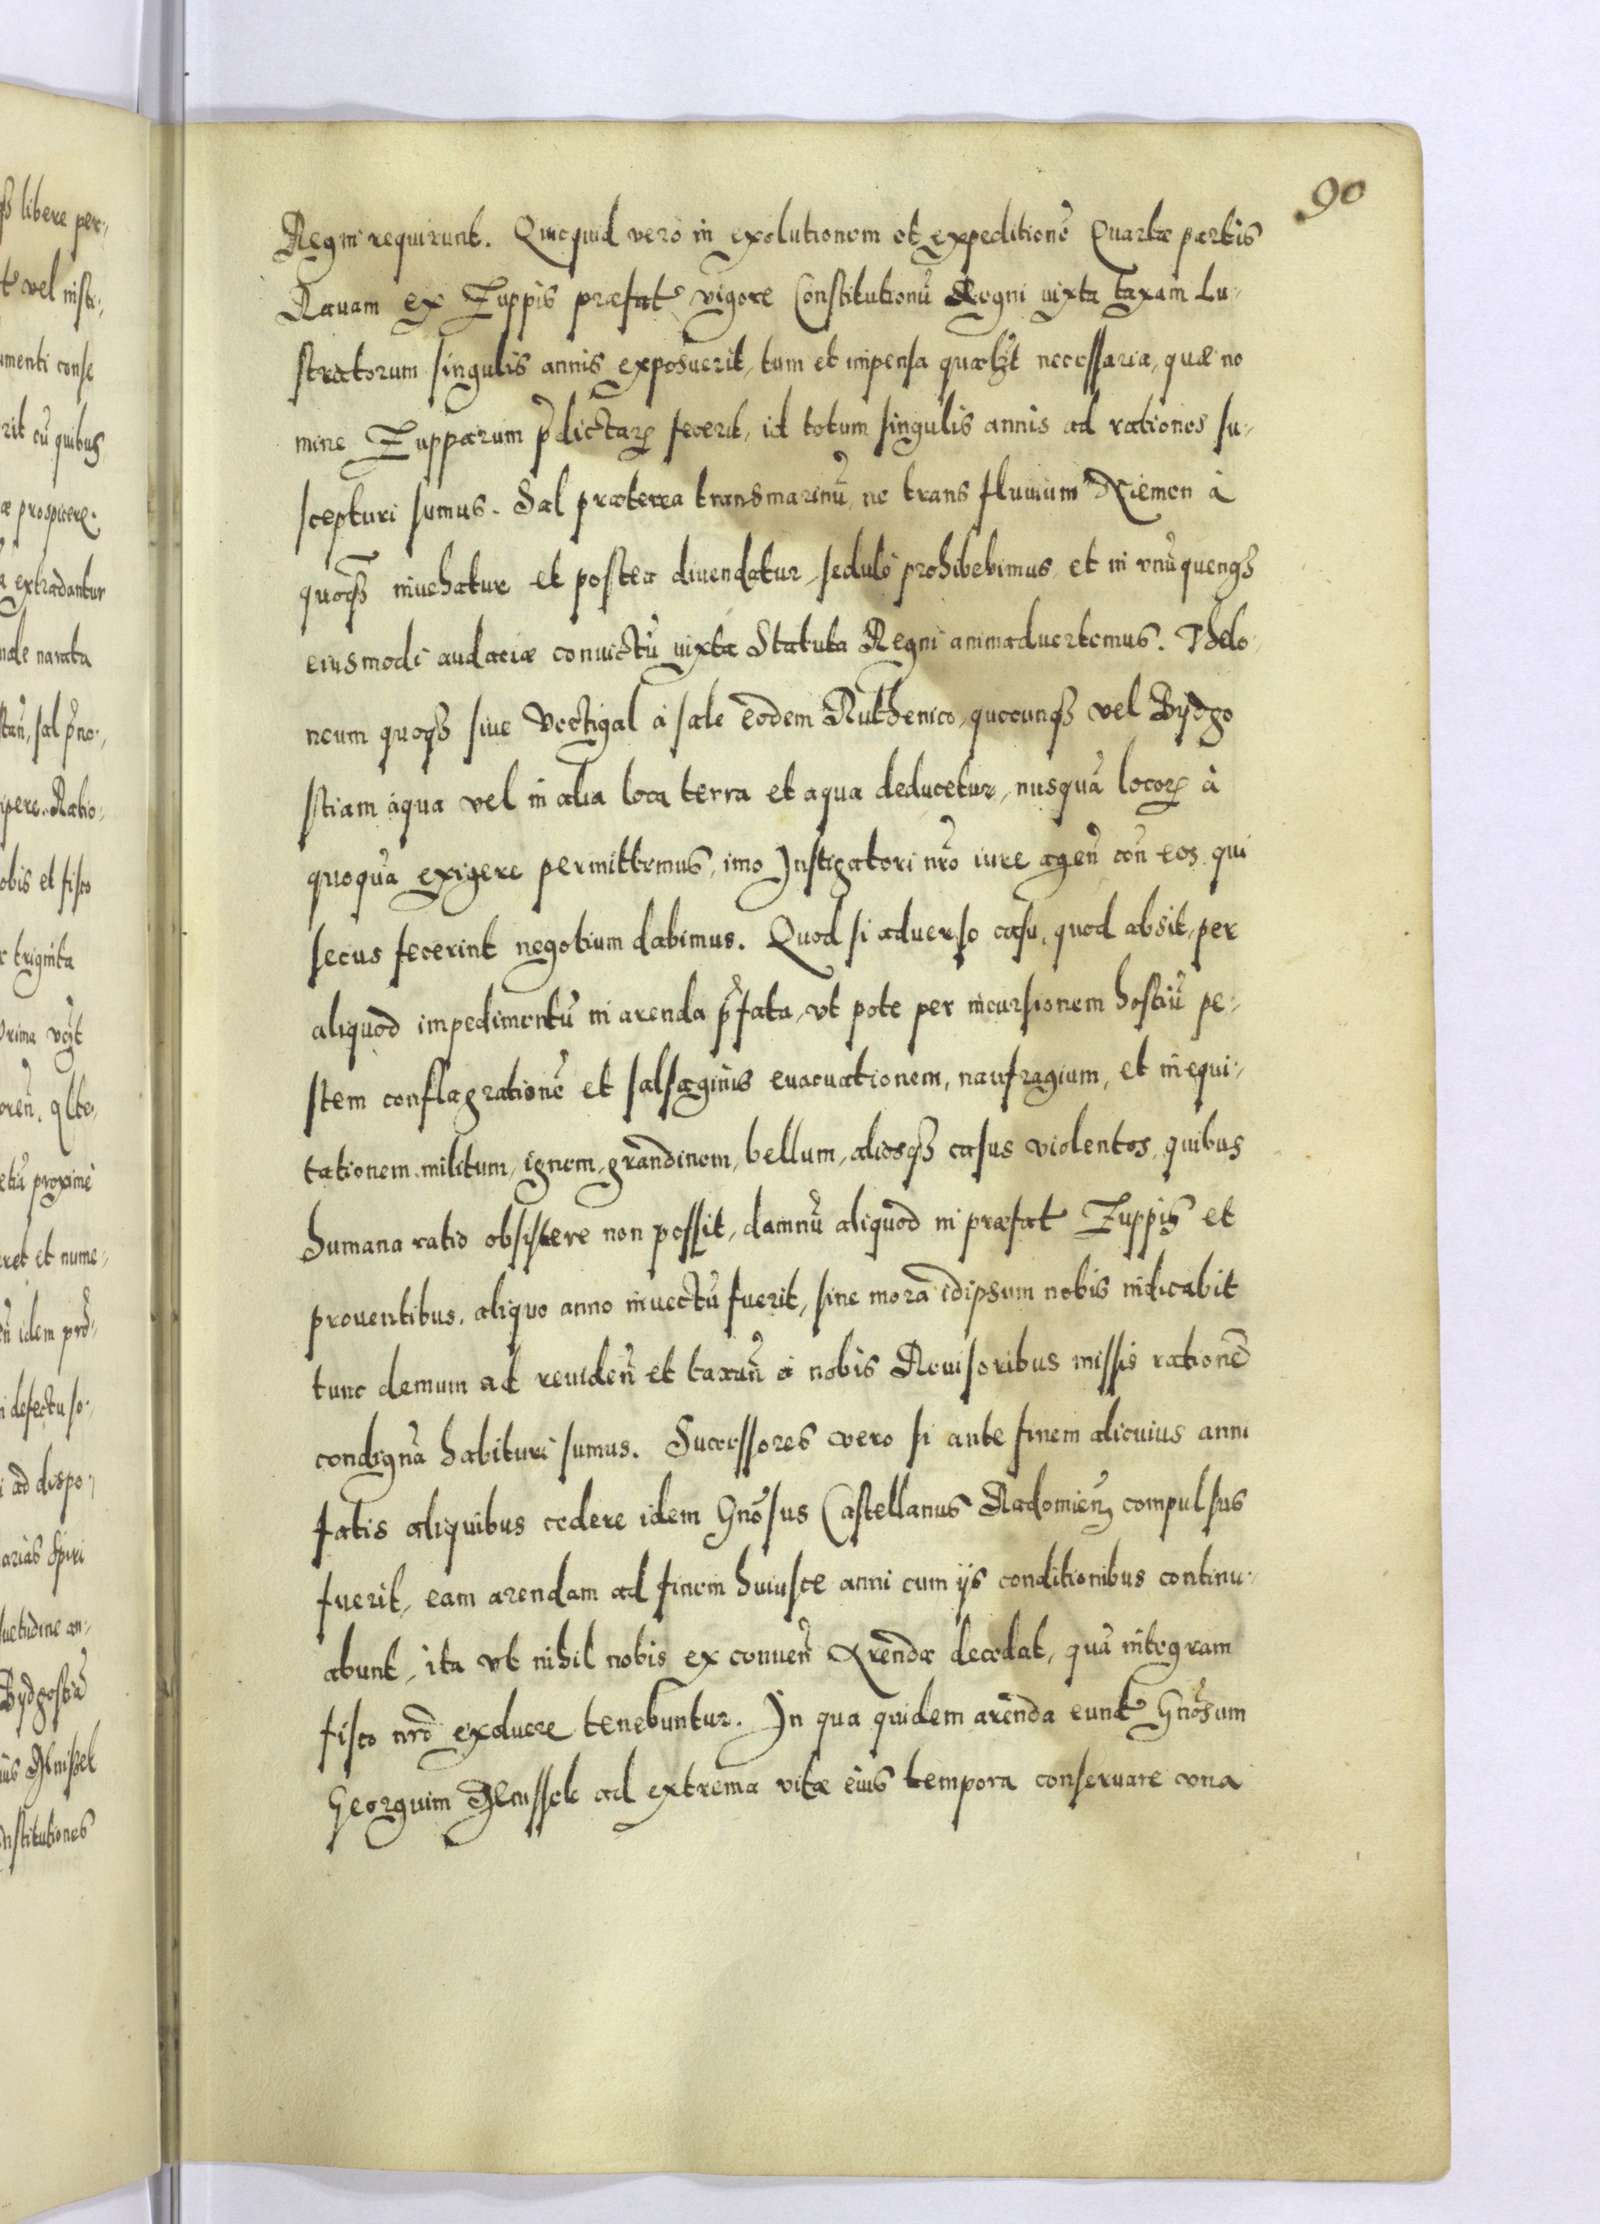 90
Regni requirunt. Quicquid vero in exolutionem et expeditionē Quartæ partis
Rauam ex Zuppis præfat vigore Constitutionū Regni iuxta taxam Lu-
stratorum singulis annis exposuerit, tum et impensa quælꝫt necessaria, quæ no
mine Zupparum p̄dictarꝝ fecerit, id totum singulis annis ad rationes su-
scepturi sumus. Sal præterea transmarinū, ne trans fluuium Niemen à
quoqꝫ inuehatur et postea diuendatur, sedulò prohibebimus, et in vnūquenqꝫ
eiusmodi audaciæ conuictū iuxta Statuta Regni animaduertemus. Thelo-
neum quoqꝫ siue Vectigal à sale eodem Ruthenico, quocunqꝫ vel Bydgo
stiam aqua vel in alia loca terra et aqua deducetur, nusquā locorꝝ à
quoquā exigere permittemus, imo Instigatori nr̄o iure agen̄ con̄ eos qui
secus fecerint negotium dabimus. Quod si aduerso casu, quod absit, per
aliquod impedimentū in arenda p̄fata, vt pote per incursionem hostiū pe-
stem conflagrationē et salsaginis euacuationem, naufragium, et inequi-
tationem militum, ignem, grandinem, bellum, aliosqꝫ casus violentos, quibus
humana ratio obsistere non possit, damnū aliquod in præfat Zuppis et
prouentibus, aliquo anno inuectū fuerit, sine mora idipsum nobis indicabit
tunc demum ad reuiden̄ et taxan̄ à nobis Reuisoribus missis rationē
condignā habituri sumus. Successores vero si ante finem alicuius anni
fatis aliquibus cedere idem Gnōsus Castellanus Radomien̄ compulsus
fuerit, eam arendam ad finem huiusce anni cum ijs conditionibus continu-
abunt, ita vt nihil nobis ex conuen̄ Arendæ decedat, quā integram
fisco nr̄o exoluere tenebuntur. In qua quidem arenda eund Gnōsum
Georgium ad extrema vitæ eius tempora conseruare vna